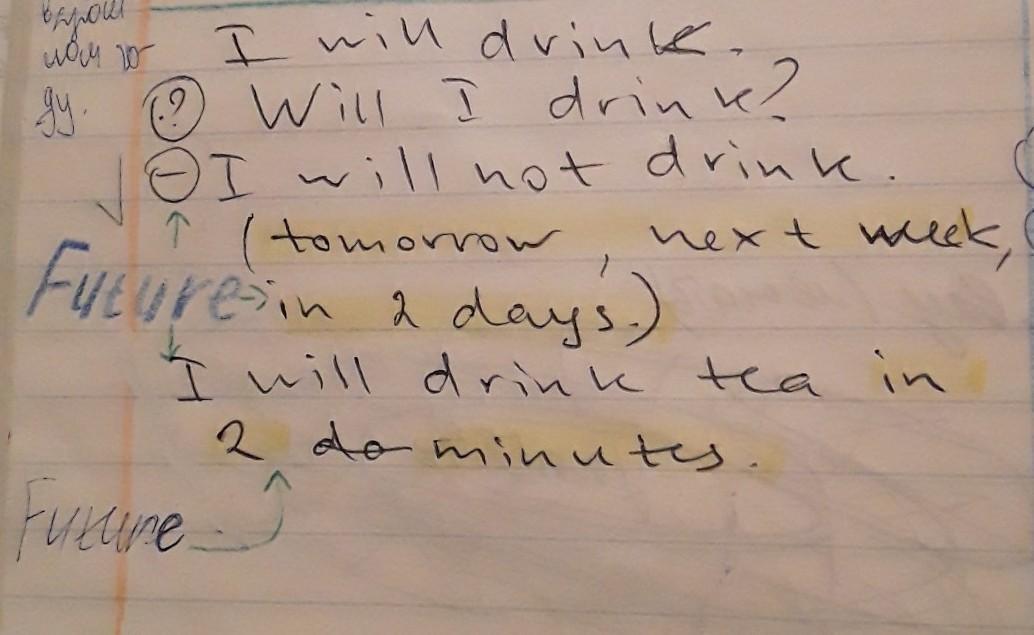 I will drink.
(?) Will I drink?
(-) I will not drink.
(tomorrow, next week,
Future → in 2 days.)
I will drink tea in
2 do minutes.
Future